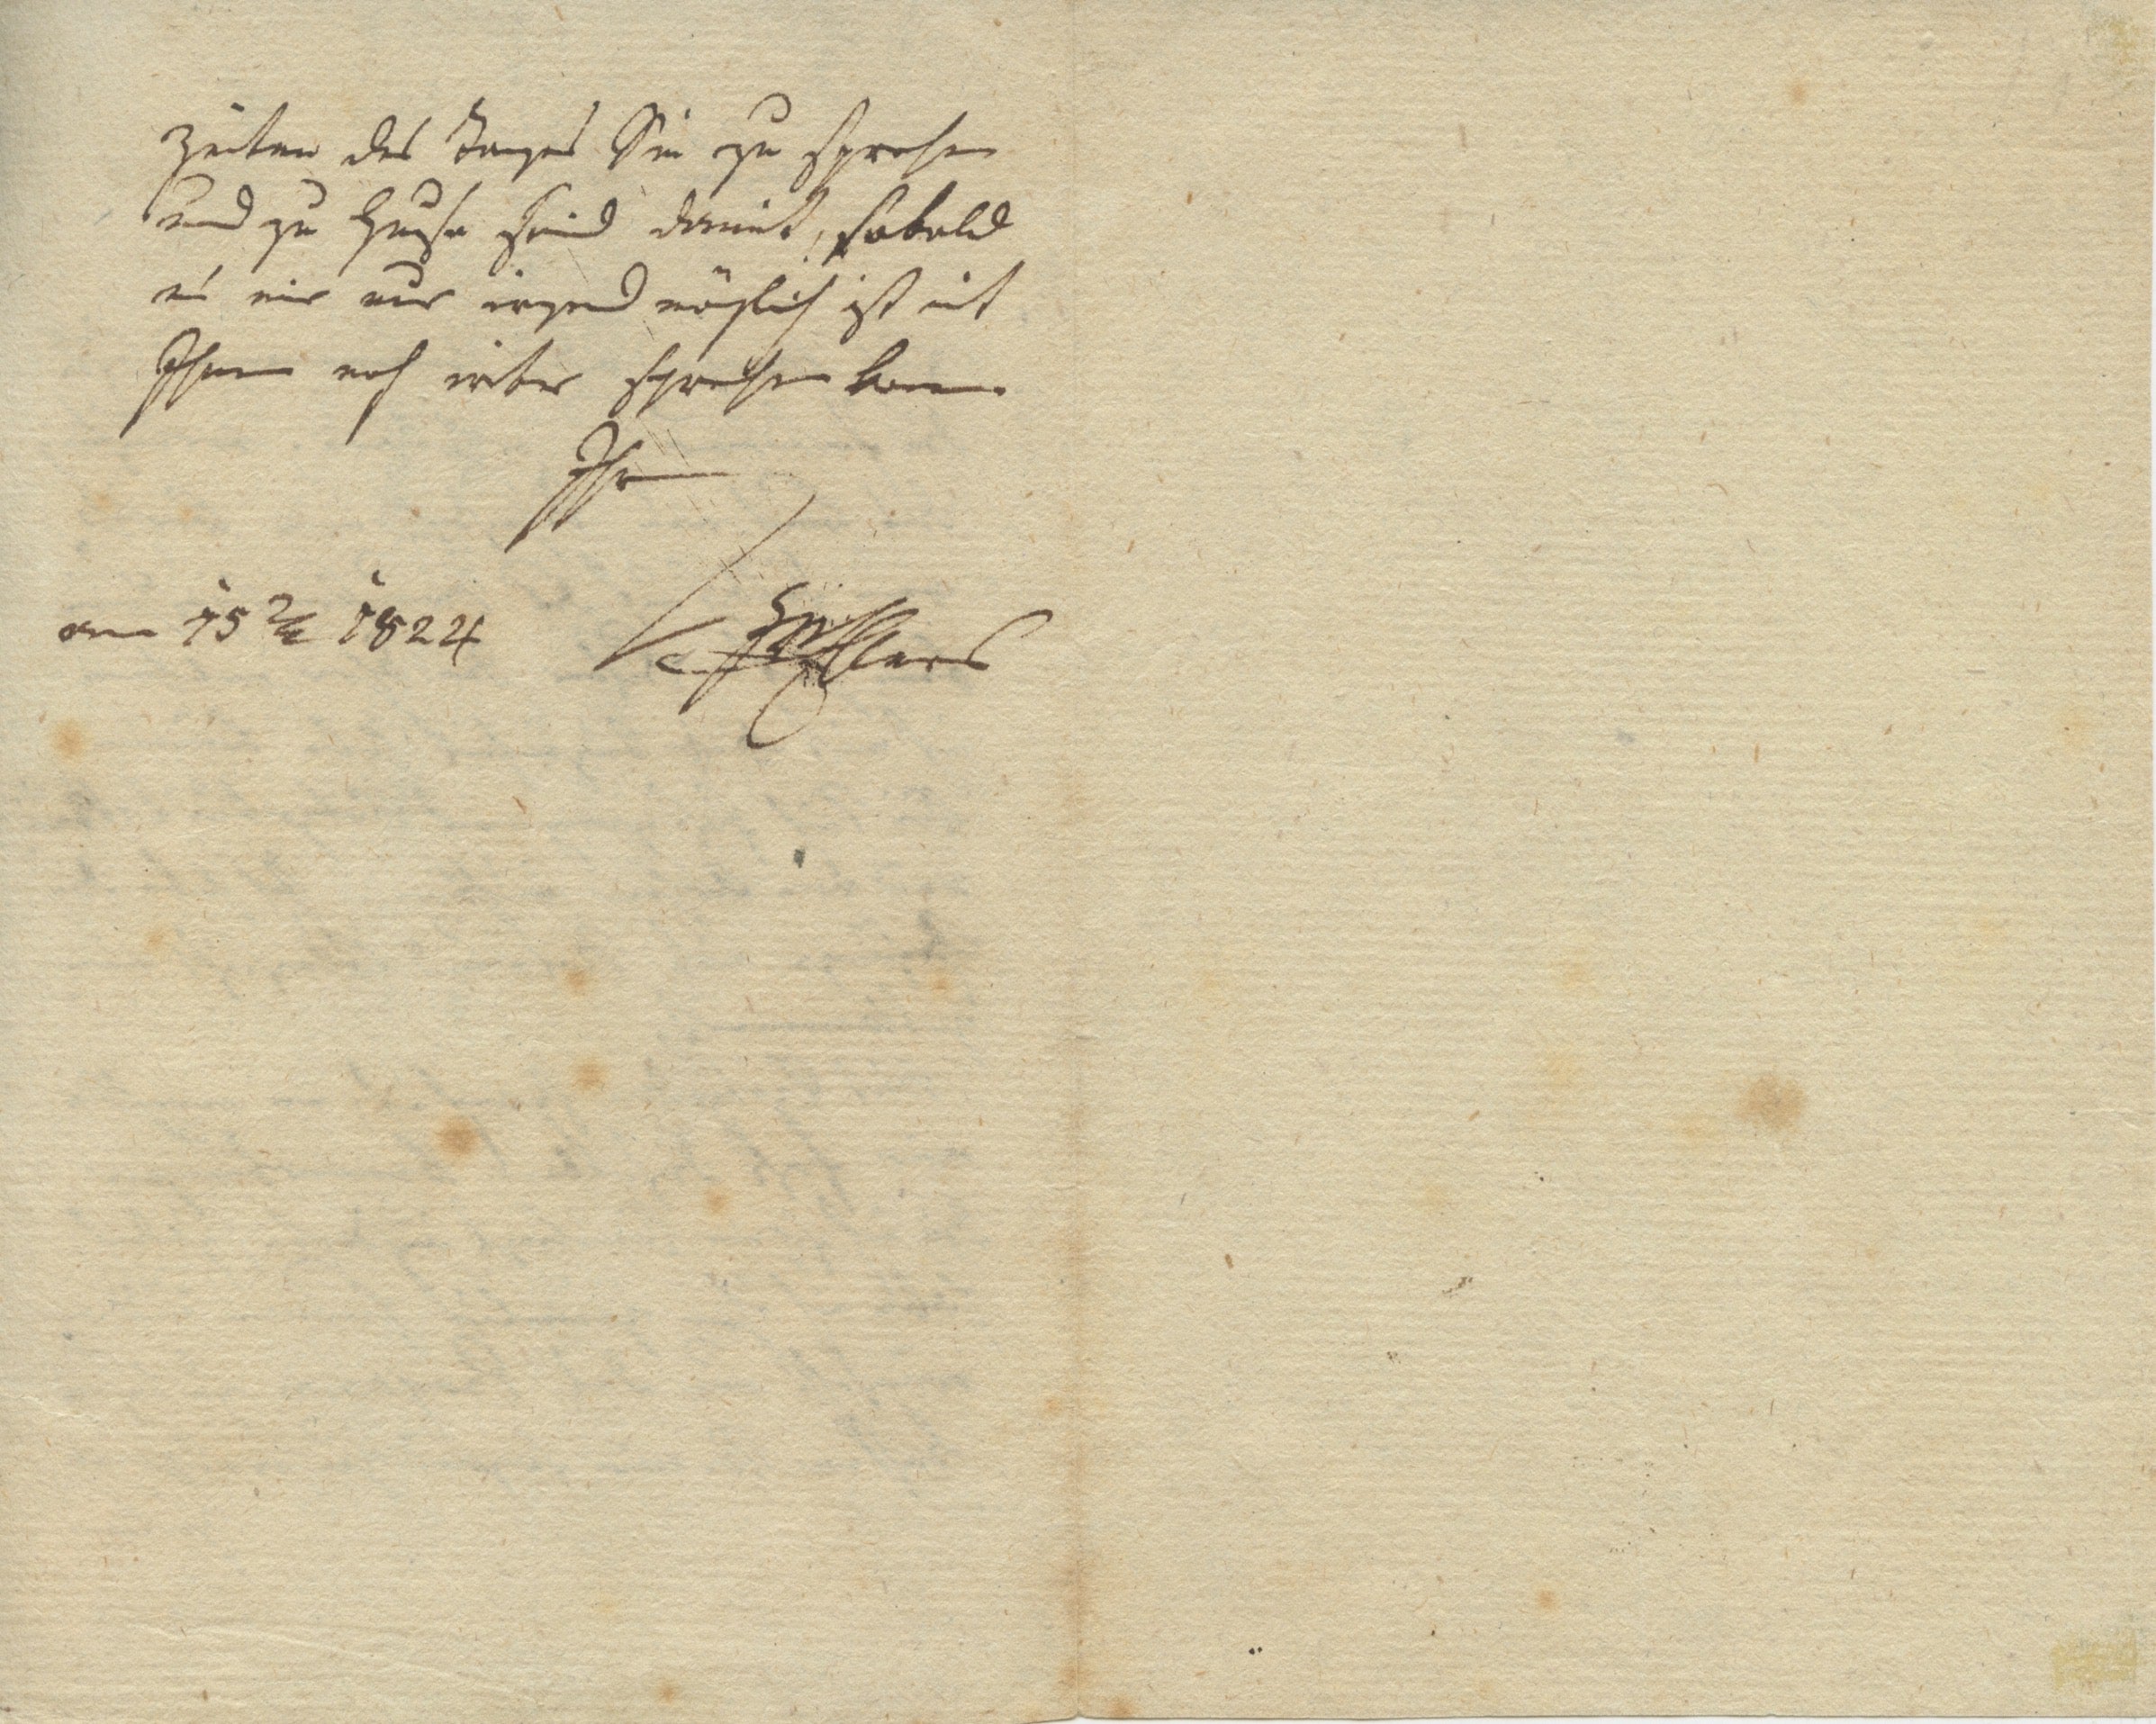 Zeiten des Tages Sie zu sprechen
und zu Hause sind damit, sobald
es mir nur irgend möglich ist mit
Ihnen noch weiter sprechen kann.
Ihr
am 15 1824